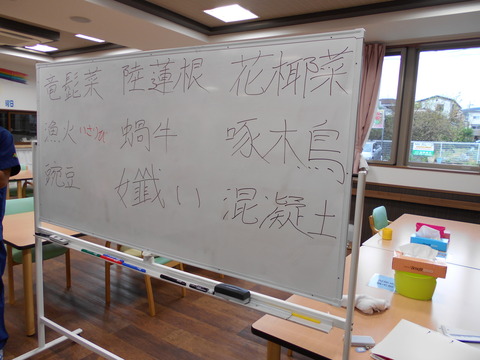 竜髭菜 陸蓮根 花椰菜
漁火 いさりび 蝸牛 啄木鳥
豌豆 孅い 混凝土